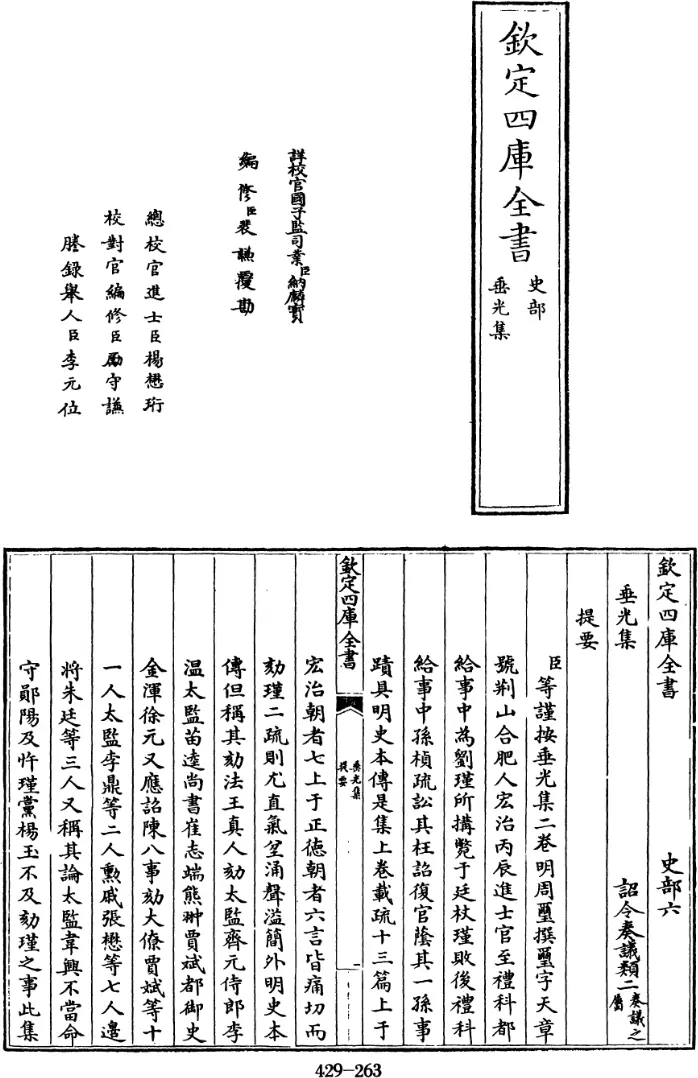 欽定四庫全書
史部
垂光集
詳校官國子監司業臣納麟寶
編修臣裴謙覆勘
總校官進士臣楊懋珩
校對官編修臣勵守謙
謄錄舉人臣李元位
欽定四庫全書
史部六
垂光集
詔令奏議類二奏議之屬
提要
臣等謹按垂光集二卷明周璽撰璽字天章
號荆山合肥人宏治丙辰進士官至禮科都
給事中為劉瑾所搆斃于廷杖瑾敗後禮科
給事中孫楨疏訟其枉詔復官蔭其一孫事
蹟具明史本傳是集上卷載疏十三篇上于
欽定四庫全書
垂光集
提要
一
宏治朝者七上于正徳朝者六言皆痛切而
劾瑾二疏則尤直氣坌涌聲溢簡外明史本
傳但稱其劾法王真人劾太監齊元侍郎李
温太監苗逵尚書崔志端熊翀賈斌都御史
金渾徐元又應詔陳八事劾大僚賈斌等十
一人太監李鼎等二人勲戚張懋等七人邉
將朱廷等三人又稱其論太監韋興不當命
守鄖陽及忤瑾黨楊玉不及劾瑾之事此集
429-263